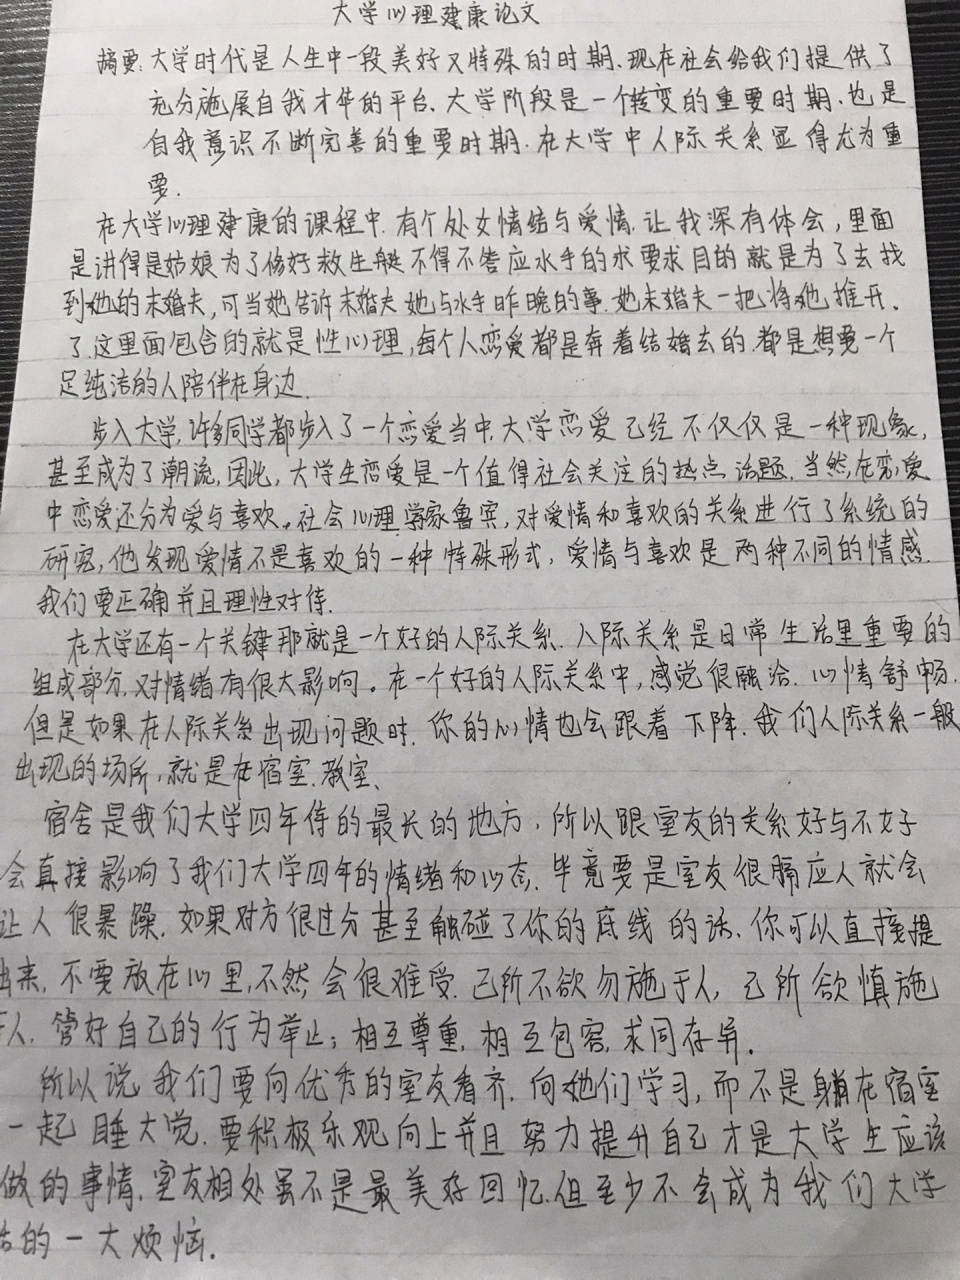 大学心理建康论文
摘要:大学时代是人生中一段美好又特殊的时期.现在社会给我们提供了
充分施展自我才华的平台.大学阶段是一个转变的重要时期.也是
自我意识不断完善的重要时期.在大学中人际关系显得尤为重
要.
在大学心理建康的课程中.有个处女情结与爱情.让我深有体会,里面
是讲得是姑娘为了修好救生艇不得不答应水手的求要求目的就是为了去找
到她的未婚夫,可当她告诉未婚夫她与水手昨晚的事.她未婚夫一把将她推开.
了.这里面包含的就是性心理,每个人恋爱都是奔着结婚去的.都是想要一个
足纯洁的人陪伴在身边.
步入大学,许多同学都步入了一个恋爱当中.大学恋爱已经不仅仅是一种现象,
甚至成为了潮流,因此,大学生恋爱是一个值得社会关注的热点话题.当然,在恋爱
中恋爱还分为爱与喜欢。社会心理学家鲁宾,对爱情和喜欢的关系进行了系统的
研究,他发现爱情不是喜欢的一种特殊形式,爱情与喜欢是两种不同的情感.
我们要正确并且理性对待.
在大学还有一个关键那就是一个好的人际关系.人际关系是日常生活里重要的
组成部分,对情绪有很大影响。在一个好的人际关系中,感觉很融洽.心情舒畅.
但是如果在人际关系出现问题时.你的心情也会跟着下降.我们人际关系一般
出现的场所,就是在宿室.教室、
宿舍是我们大学四年待的最长的地方,所以跟室友的关系好与不好
会直接影响了我们大学四年的情绪和心态.毕竟要是室友很膈应人就会
让人很暴躁.如果对方很过分甚至触碰了你的底线的话.你可以直接提
出来,不要放在心里,不然会很难受.己所不欲勿施于人,己所欲慎施
于人.管好自己的行为举止;相互尊重,相互包容,求同存异.
所以说,我们要向优秀的室友看齐.向她们学习,而不是躺在宿室
一起睡大觉.要积极乐观向上并且努力提升自己才是大学生应该
做的事情.室友相处虽不是最美好回忆.但至少不会成为我们大学
的一大烦恼.